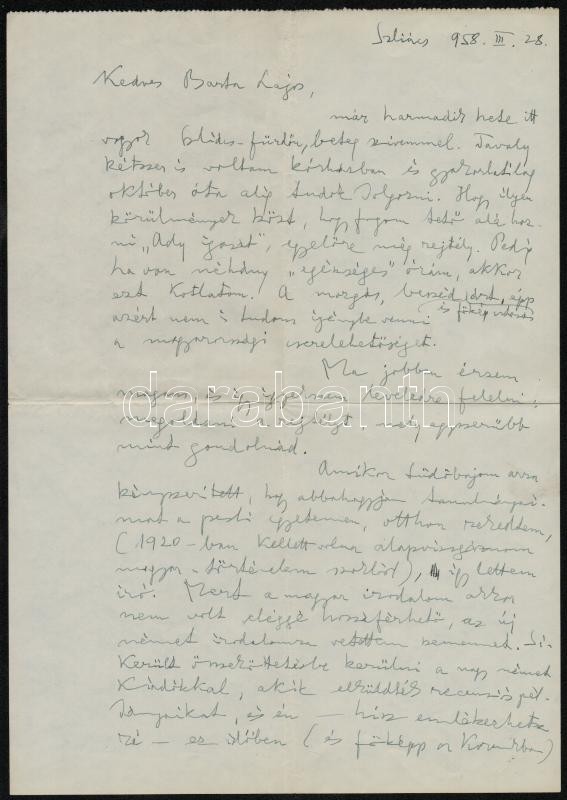 Szliács 958. III. 28.
Kedves Barta Lajos,
már harmadik hete itt
vagyok Szliács-fürdőn, beteg szivemmel. Tavaly
kétszer is voltam kórházban és gyakorlatilag
október óta alig tudok dolgozni. Hogy ilyen
körülmények közt, hogy fogom tető alá hoz-
ni „Ady igazát", egyelőre még rejtély. Pedig
ha van néhány „egészséges" órám, akkor
ezt kotlatom. A mozgás, beszéd árt, épp
és főkép utazás
azért nem is tudom igénybe venni
a magyarországi cserelehetőséget.
Ma jobban érzem
magam és így levelére felelni:
megoldani a rejtélyt mely egyszerűbb
mint gondolnád.
darabanth
Amikor tüdőbajom arra
kényszerített, hogy abbahagyjam tanulmányai-
mat a pesti egyetemen, otthon
(1920-ban kellett volna alapvizsgáznom
magyar-történelem szakból), így lettem
író. Mert a magyar irodalom akkor
nem volt eléggé hozzáférhető, az új
német irodalomra vetettem szememet. Si-
került összeköttetésbe kerülni a nagy német
kiadókkal, akik elküldték recenziós pél-
dányaikat, és én — hisz emlékezhetsz
rá — ez időben (és főképp a Korunkban)